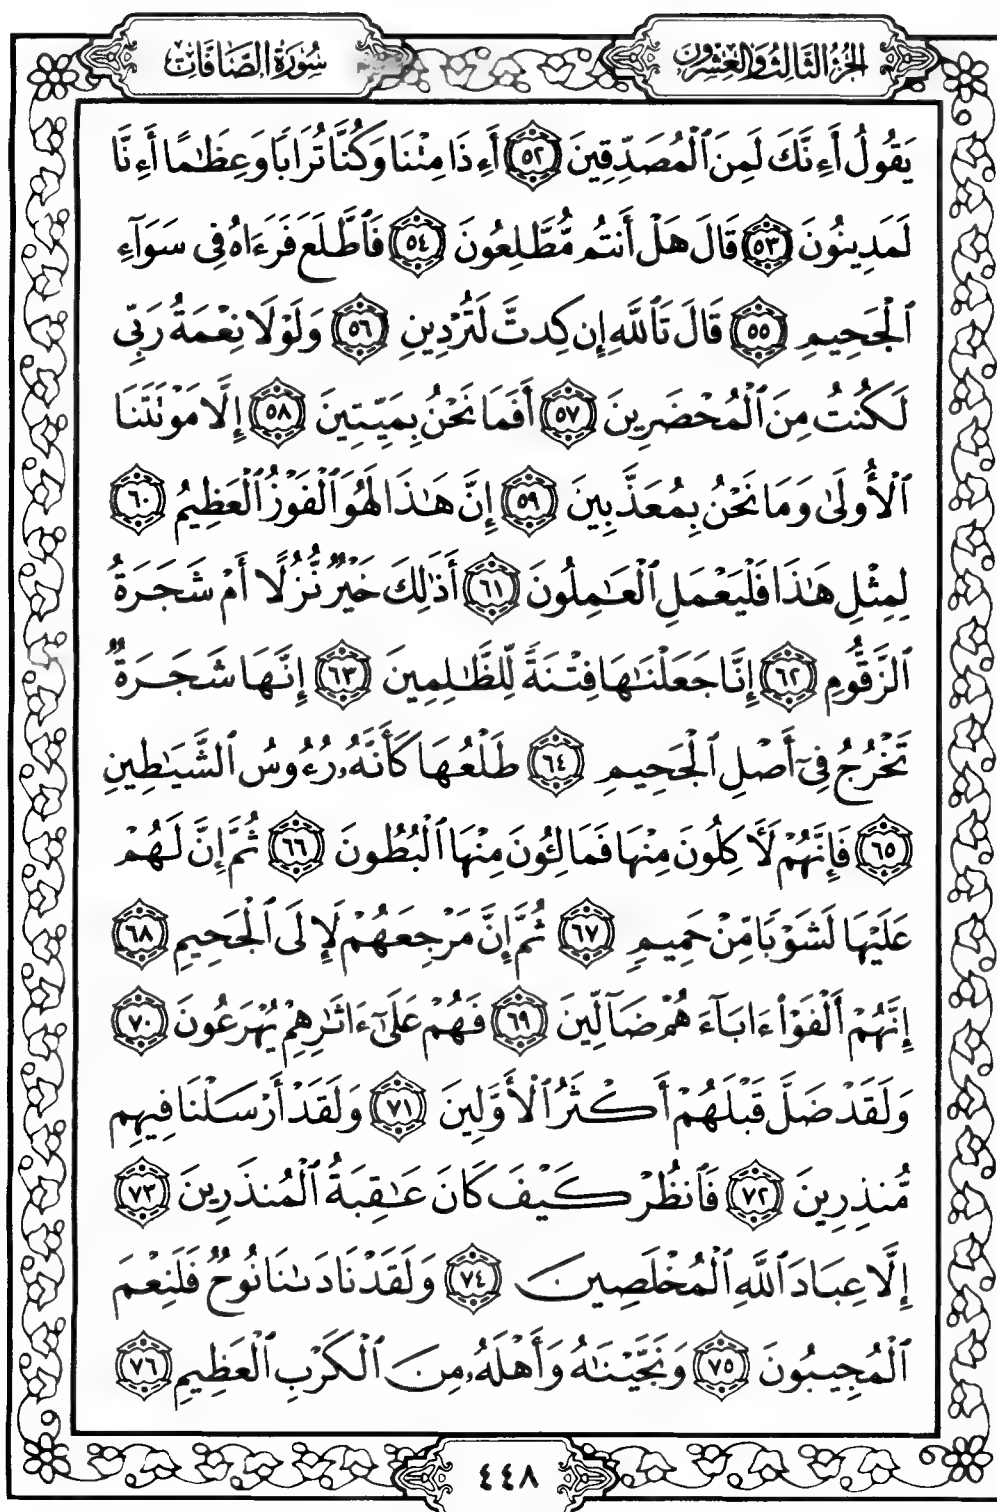 الجزء الثالث والعشرون
سورة الصافات
يَقُولُ أَءِنَّكَ لَمِنَ ٱلْمُصَدِّقِينَ ٥٢ أَءِذَا مِتْنَا وَكُنَّا تُرَابًا وَعِظَٰمًا أَءِنَّا
لَمَدِينُونَ ٥٣ قَالَ هَلْ أَنتُم مُّطَّلِعُونَ ٥٤ فَٱطَّلَعَ فَرَءَاهُ فِى سَوَآءِ
ٱلْجَحِيمِ ٥٥ قَالَ تَٱللَّهِ إِن كِدتَّ لَتُرْدِينِ ٥٦ وَلَوْلَا نِعْمَةُ رَبِّى
لَكُنتُ مِنَ ٱلْمُحْضَرِينَ ٥٧ أَفَمَا نَحْنُ بِمَيِّتِينَ ٥٨ إِلَّا مَوْتَتَنَا
ٱلْأُولَىٰ وَمَا نَحْنُ بِمُعَذَّبِينَ ٥٩ إِنَّ هَٰذَا لَهُوَ ٱلْفَوْزُ ٱلْعَظِيمُ ٦٠
لِمِثْلِ هَٰذَا فَلْيَعْمَلِ ٱلْعَٰمِلُونَ ٦١ أَذَٰلِكَ خَيْرٌ نُّزُلًا أَمْ شَجَرَةُ
ٱلزَّقُّومِ ٦٢ إِنَّا جَعَلْنَٰهَا فِتْنَةً لِّلظَّٰلِمِينَ ٦٣ إِنَّهَا شَجَرَةٌ
تَخْرُجُ فِىٓ أَصْلِ ٱلْجَحِيمِ ٦٤ طَلْعُهَا كَأَنَّهُۥ رُءُوسُ ٱلشَّيَٰطِينِ
٦٥ فَإِنَّهُمْ لَـَٔاكِلُونَ مِنْهَا فَمَالِـُٔونَ مِنْهَا ٱلْبُطُونَ ٦٦ ثُمَّ إِنَّ لَهُمْ
عَلَيْهَا لَشَوْبًا مِّنْ حَمِيمٍ ٦٧ ثُمَّ إِنَّ مَرْجِعَهُمْ لَإِلَى ٱلْجَحِيمِ ٦٨
إِنَّهُمْ أَلْفَوْا۟ ءَابَآءَهُمْ ضَآلِّينَ ٦٩ فَهُمْ عَلَىٰٓ ءَاثَٰرِهِمْ يُهْرَعُونَ ٧٠
وَلَقَدْ ضَلَّ قَبْلَهُمْ أَكْثَرُ ٱلْأَوَّلِينَ ٧١ وَلَقَدْ أَرْسَلْنَا فِيهِم
مُّنذِرِينَ ٧٢ فَٱنظُرْ كَيْفَ كَانَ عَٰقِبَةُ ٱلْمُنذَرِينَ ٧٣
إِلَّا عِبَادَ ٱللَّهِ ٱلْمُخْلَصِينَ ٧٤ وَلَقَدْ نَادَىٰنَا نُوحٌ فَلَنِعْمَ
ٱلْمُجِيبُونَ ٧٥ وَنَجَّيْنَٰهُ وَأَهْلَهُۥ مِنَ ٱلْكَرْبِ ٱلْعَظِيمِ ٧٦
٤٤٨